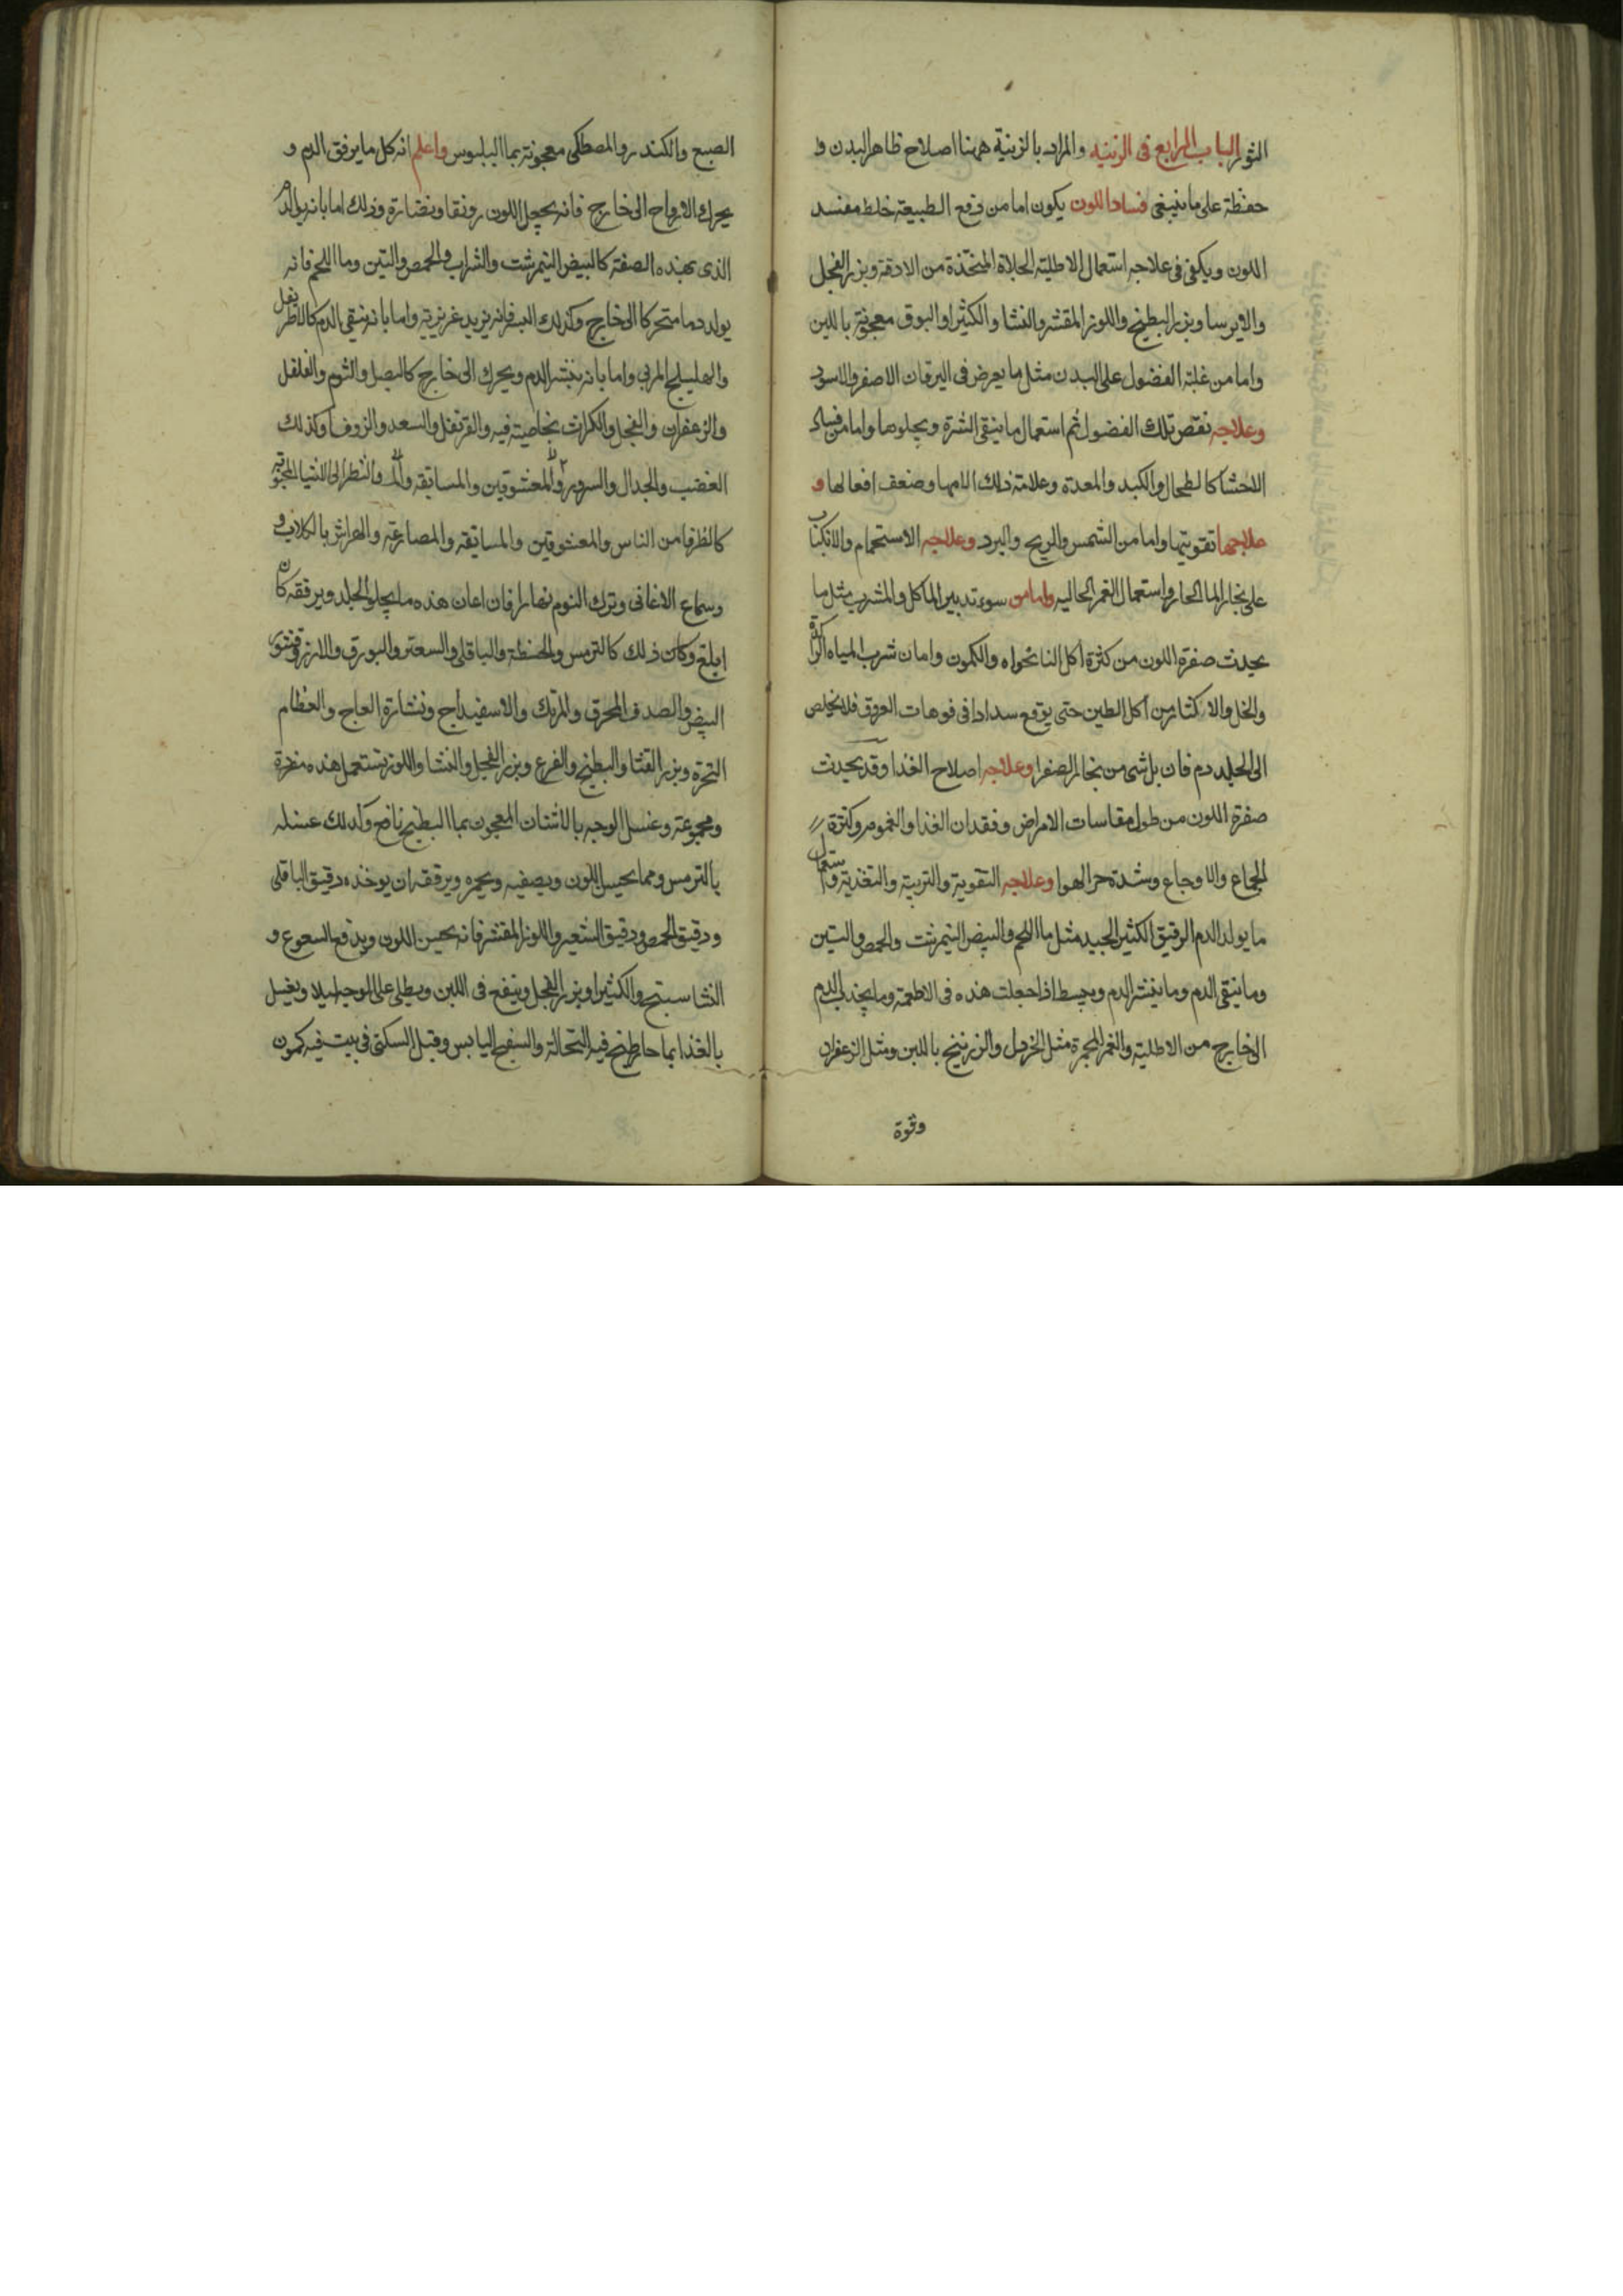 الثوم الباب الرابع فى الزينه والمراد بالزينة ههنا اصلاح ظاهر البدن و
حفظة على ما ينبغى فساد اللون يكون اما من دفع الطبيعة خلط مفسد
اللون ويكفى فى علاجه استعمال الاطلية الجلاة المتخذة من الادقة وبزر الفجل
والايرسا وبزر البطيخ واللوز المقشر والنشا والكثيرا والبوق معجونة باللبن
واما من غلبة الفضول على البدن مثل ما يعرض فى اليرقان الاصفر والاسود
وعلاجه نقص تلك الفضول ثم استعمال ما ينقى البشرة ويجلوها واما من فساد
الاحشا كالطحال والكبد والمعدة وعلامة ذلك الامها وضعف افعالها و
علاجها تقويتها واما من الشمس والريح والبرد وعلاجه الاستحمام والانكباب
على بخار الما الحار واستعمال الغمر الجاليه واما من سوء تدبير الماكل والمشرب مثل ما
يحدث صفرة اللون من كثرة اكل النانخواه والكمون واما من شرب المياه الراكدة
والخل والاكثار من اكل الطين حتى يوقع سدادا فى فوهات العروق فلا يخلص
الى الجلد دم قان بل شى من بخار الصفرا وعلاجه اصلاح الغذا وقد يحدث
صفرة اللون من طول مقاسات الامراض وفقدان الغذا والغموم وكثرة
الجماع والاوجاع وشدة حر الهوا وعلاجه التقوية والتربية والتغذية واستعمال
ما يولد الدم الرقيق الكثير الجيد مثل ما اللحم والبيض النيمرشت والحمص والتين
وما ينقى الدم وما ينشر الدم ويبسط اذا جعلت هذه فى الاطعمة وما يجذب الدم
الى خارج من الاطلية والغمر المحمرة مثل الخردل والزرنيخ باللبن ومثل الزعفران
وقوة
الصبع والكندر والمصطكى معجونة بما البلبوس واعلم انه كل ما يرقق الدم و
يحرك الارواح الى خارج فانه يجعل اللون رونقا ونضارة وذلك اما بانه يولد الدم
الذى بهذه الصفة كالبيض النيمرشت والشراب والحمص والتين وما اللحم فانه
يولد دما متحركا الى خارج وكذلك فانه يزيد غريزية واما بانه ينقى الدم كالاطريفل
والهليلج المربى واما بانه ينشر الدم ويحرك الى خارج كالبصل والثوم والفلفل
والزعفران والفجل والكراث بخاصية فيه والقرنفل والسعد والزوفا وكذلك
الغضب والجدال والسرور والمعشوقين والمسابقه والنظر الى الاشيا المحبوبة
كالظرفا من الناس والمعشوقين والمسابقه والمصارعة والهراش بالكلاب و
وسماع الاغانى وترك النوم نهارا فان اعان هذه ما يجلو الجلد ويرققه كان
ابلغ وكان ذلك كالترمس والحنطة والباقلى والسعتر والبورق والارز وقشور
البيض والصدف المحرق والمرتك والاسفيداج ونشارة العاج والعظام
النخرة وبزر القثا والبطيخ والقرع وبزر الفجل والنشا واللوز تستعمل هذه مفردة
ومجموعة وغسل الوجه بالاشنان المعجون بما البطيخ نافع وكذلك غسله
بالترمس ومما يحسن اللون ويصفيه ويحمره ويرققه ان يوخذ دقيق الباقلى
ودقيق الحمص ودقيق الشعير واللوز المقشر فانه يحسن اللون ويدفع السعوع و
النشا سبتج والكثيرا وبزر الفجل وينقع فى اللبن ويطلى على الوجه ليلا ويغسل
بالغدا بما حار طبخ فيه النخالة والبنفسج اليابس وقيل السكنى فى بيت فيه كمون